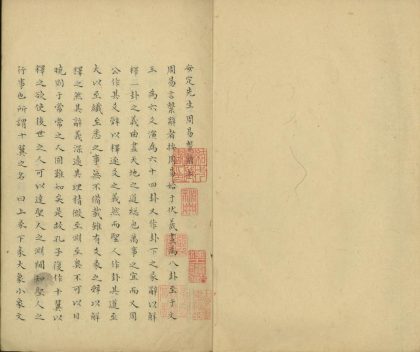 安定先生周易繫辭上
周易言繫辭者按周易始于伏羲畫為八卦至于文
王為六爻演為六十四卦又作卦下之彖辭以解
釋二卦之義由是天地之道福也萬事之宜而又周
公作其爻辭以釋逐爻之義然而聖人作卦其道至
大以至纖至悉之事無不備載雖有爻彖之辭以解
釋之然其辭義深遠其理精微至淵至奧不可以曰
曉則于常常之人固難知矣是故孔子復作十翼以
釋之欲使後世之人可以達聖人之淵閫知聖人之
行事也所謂十翼之名曰上彖下彖大象小象文